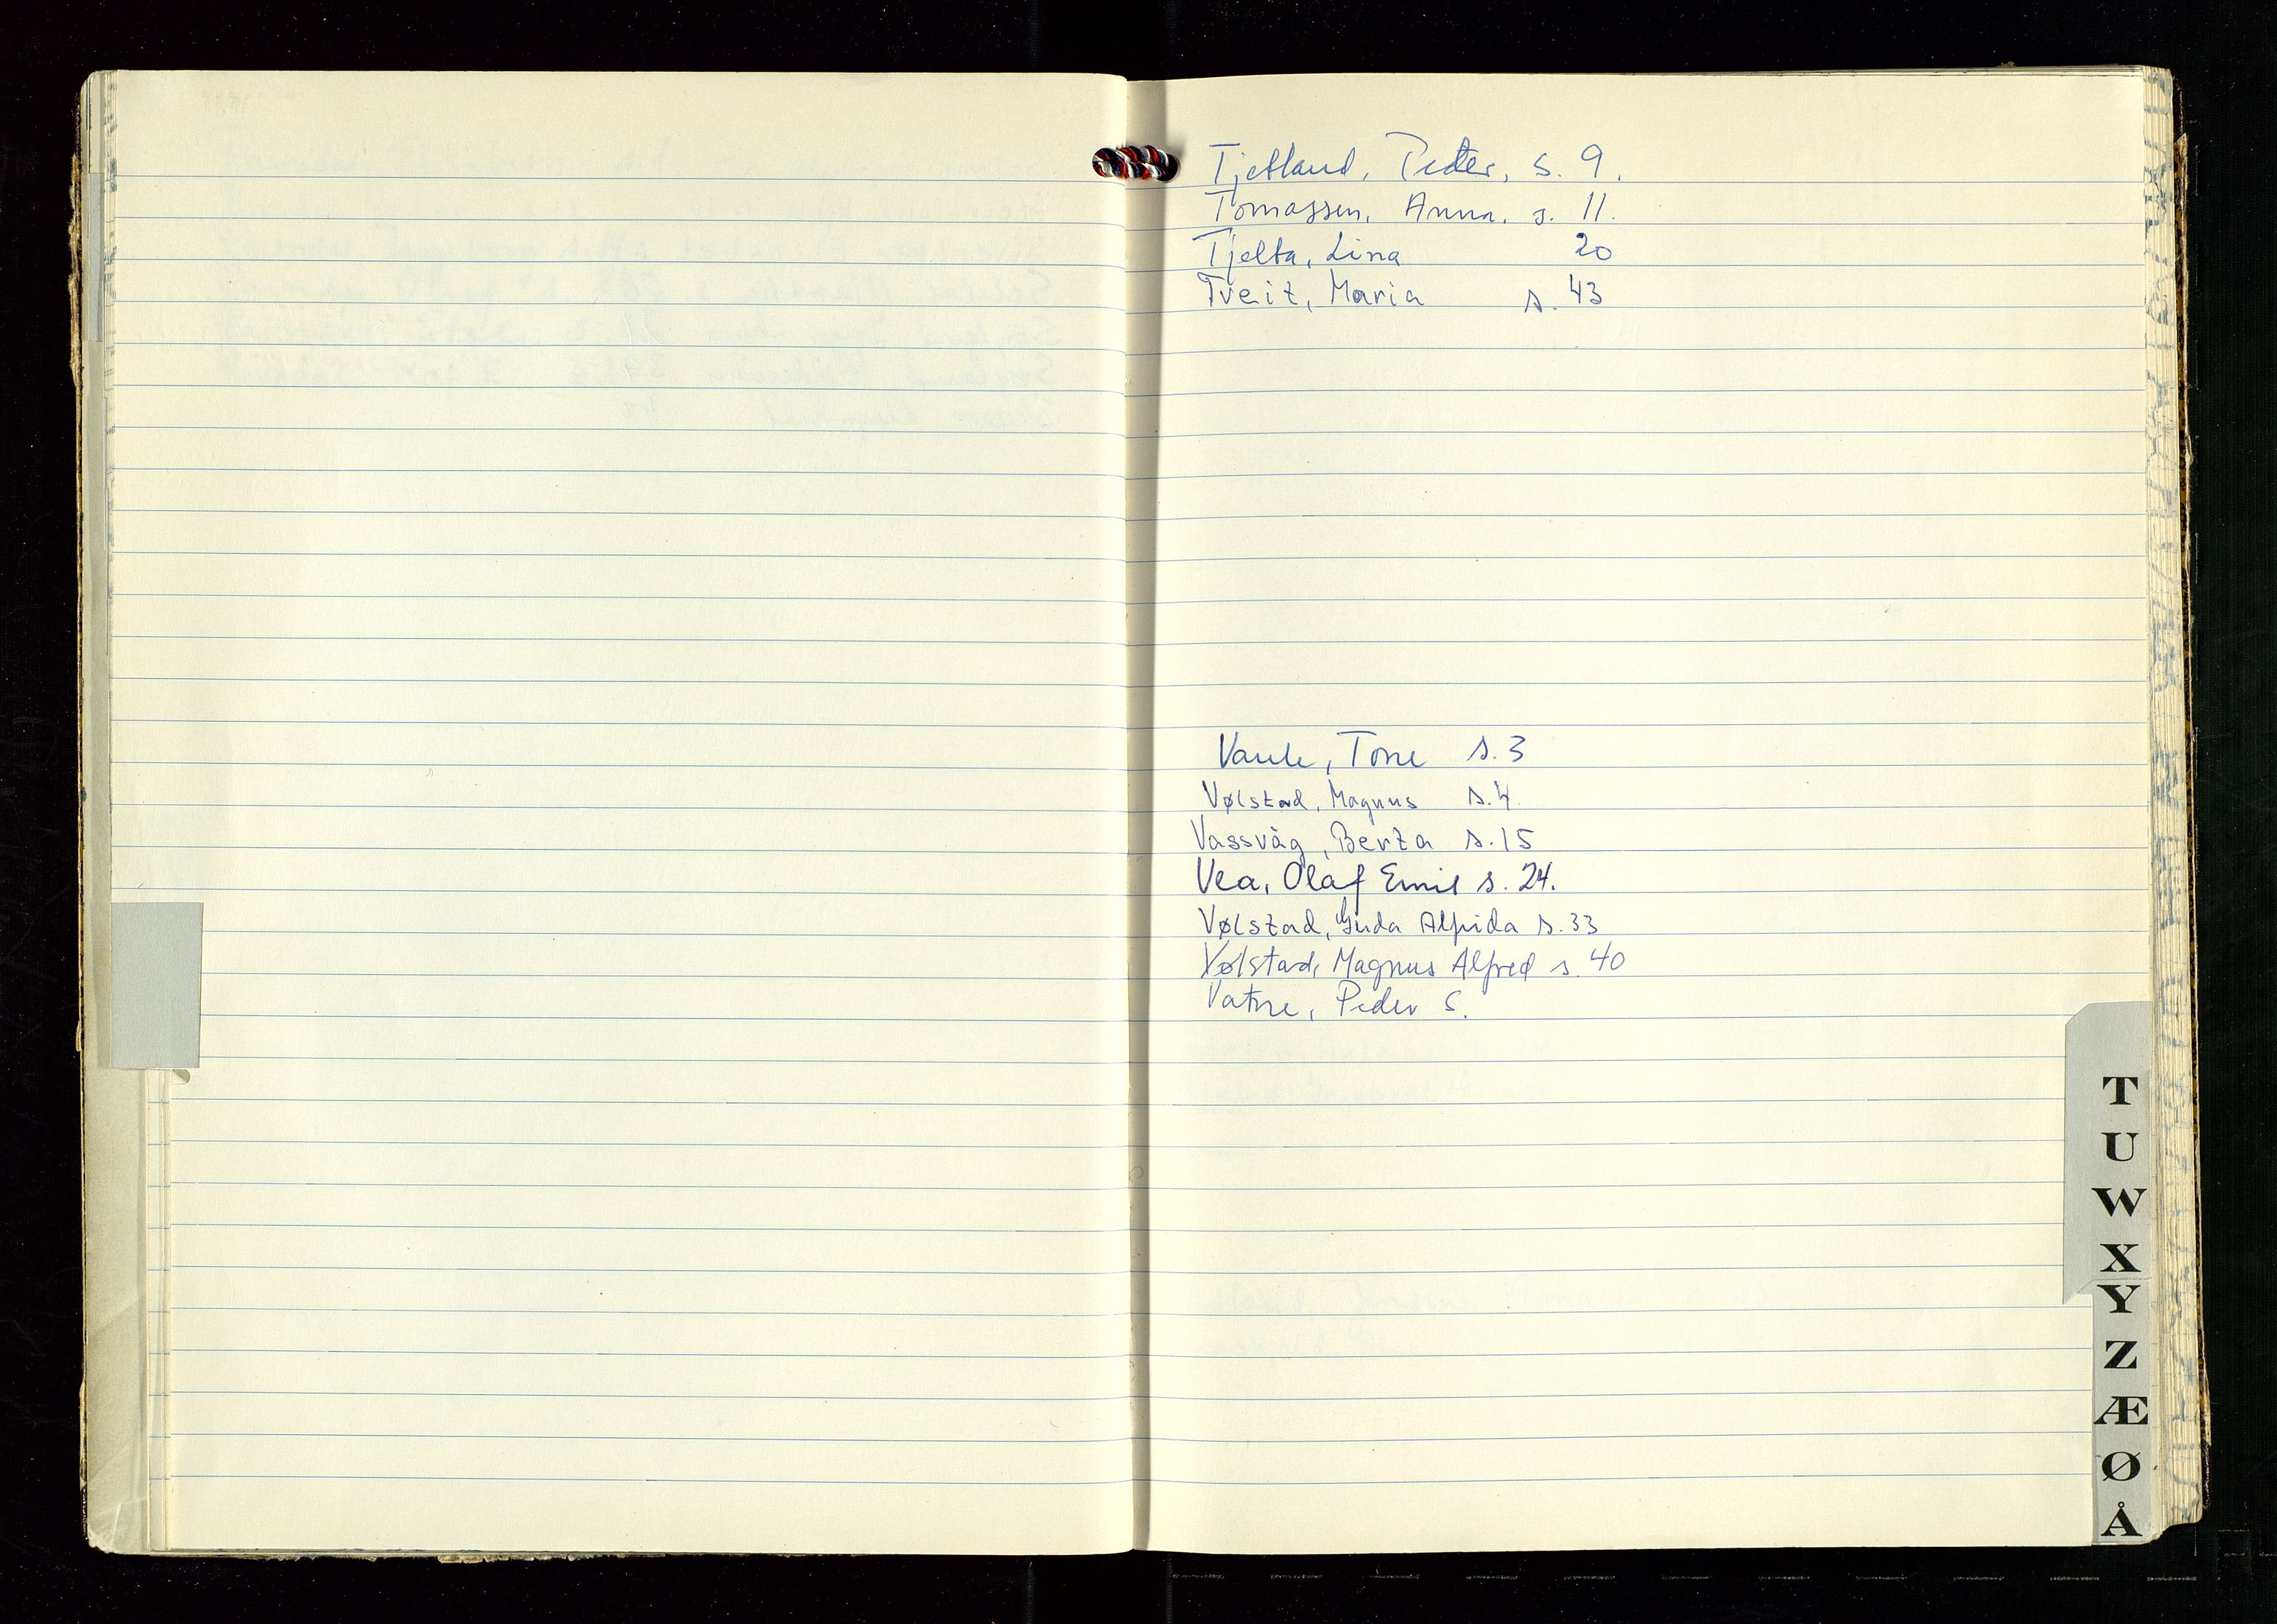 Tjetland, Peder, s. 9.
Tomassen, Anna. s. 11.
Tjelta, Lina 20
Tveit, Maria s. 43
Vaule, Tone s. 3
Vølstad, Magnus s. 4
Vassvåg, Berta s. 15
Vea, Olaf Emil s. 24.
Vølstad, Guda Alfrida s. 33
Vølstad, Magnus Alfred s. 40
Vatne, Peder S.
T
U
W
X
Y
Z
Æ
Ø
Å